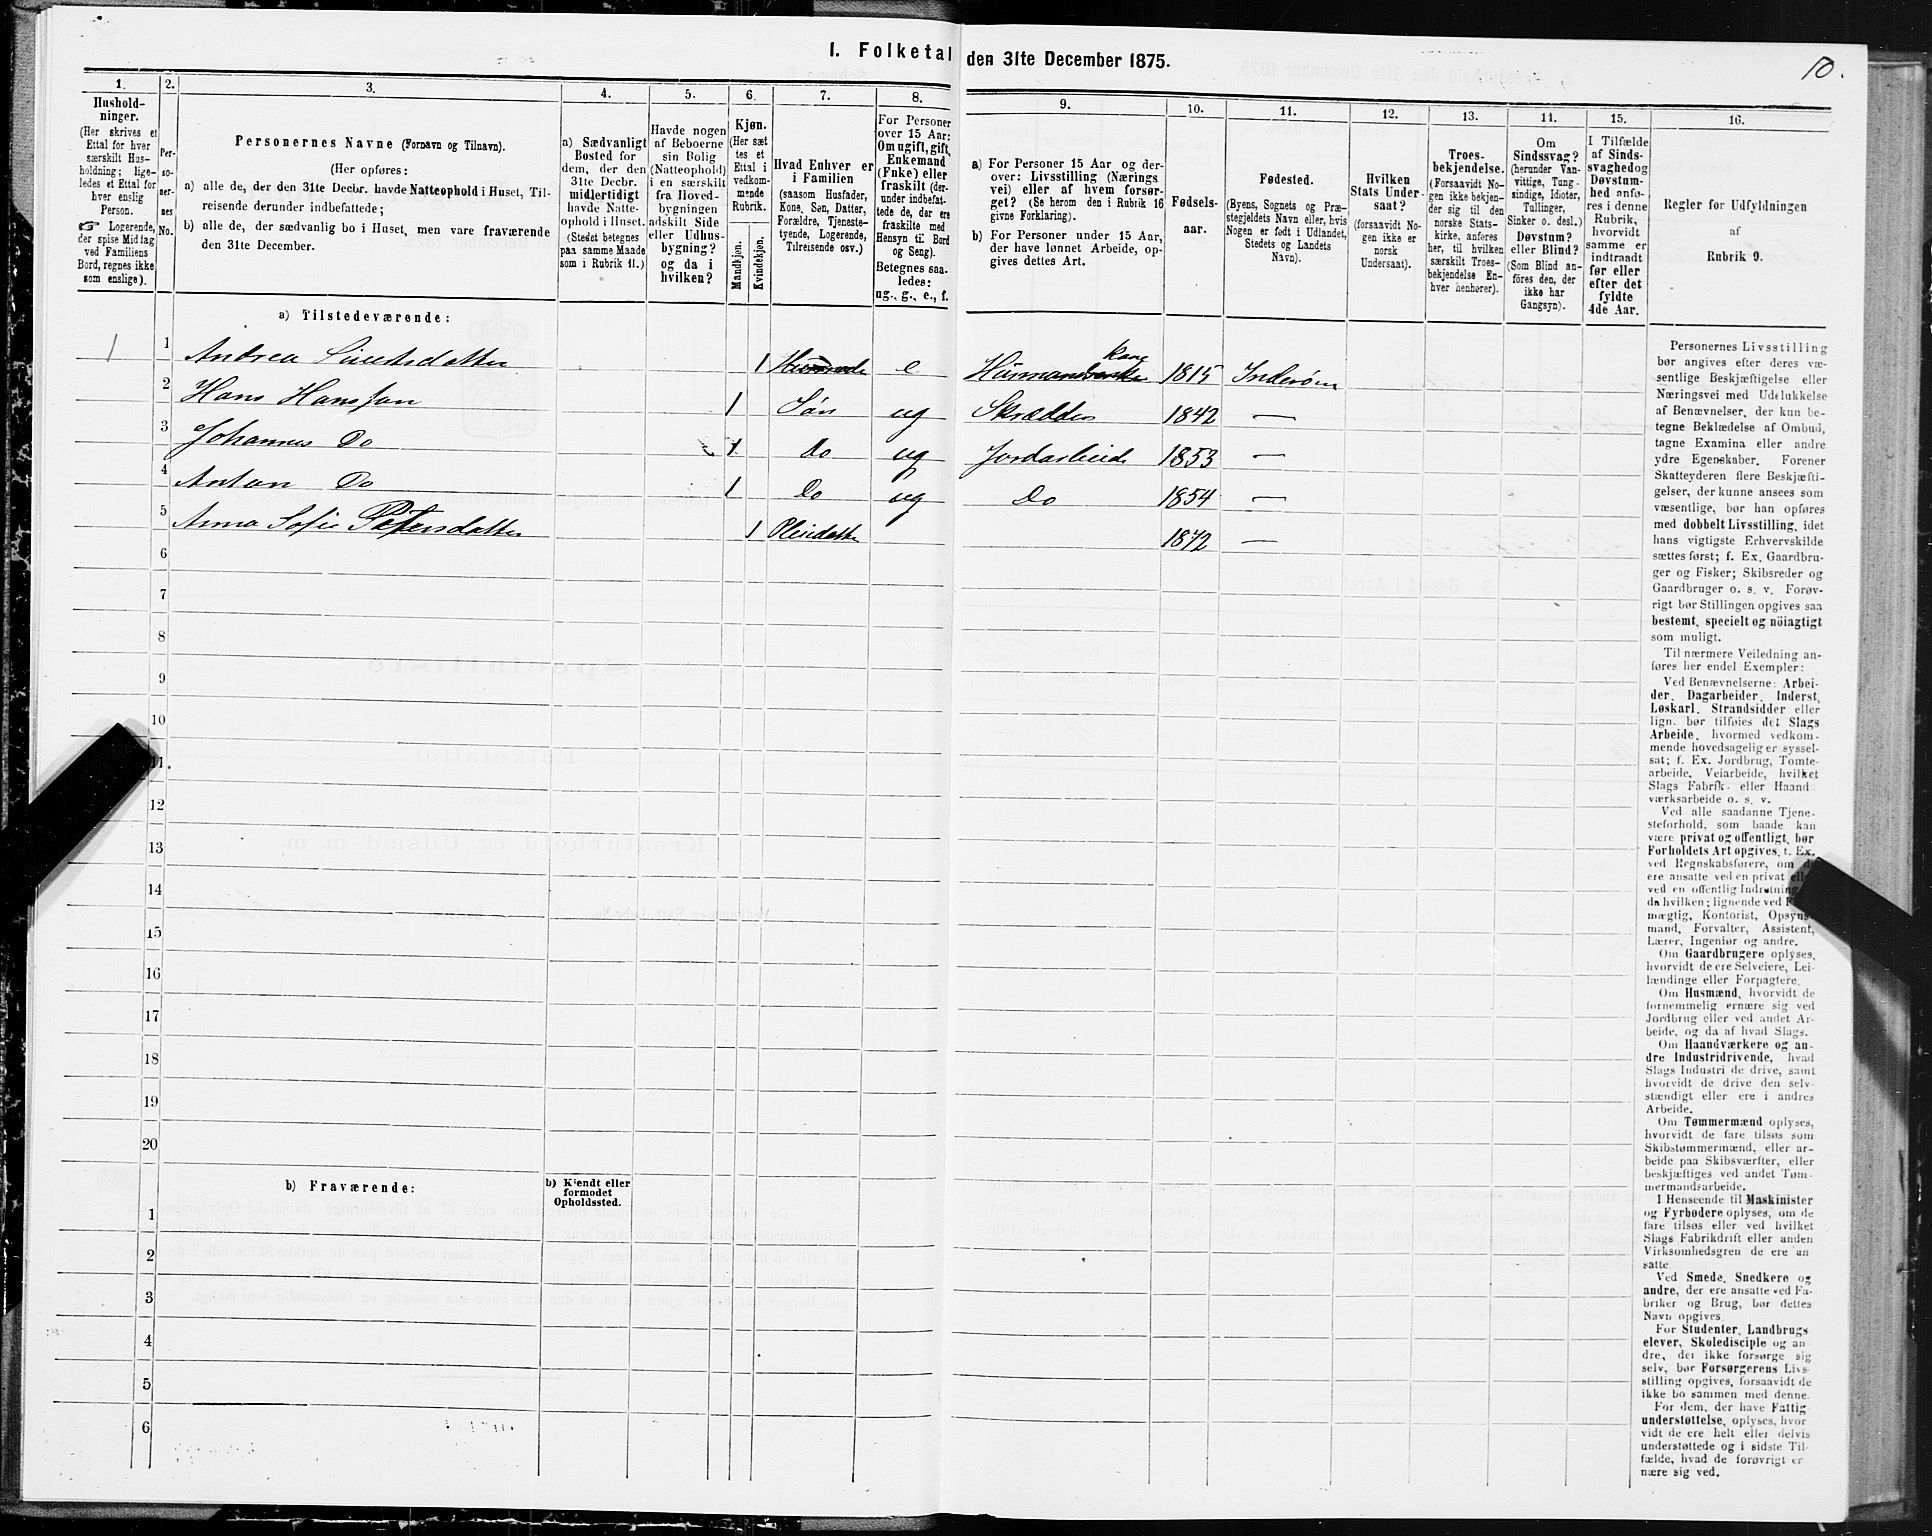 I. Folketal den 31te December 1875.
10.
1.
Hushold-
ninger.
(Her skrives et
Ettal for hver
særskilt Hus-
holdning; lige-
ledes et Ettal for
hver enslig
Person.
☞ Logerende,
der spise Middag
ved Familiens
Bord, regnes ikke
som enslige).
2.
Per-
so-
ner-
nes
No.
3.
Personernes Navne (Fornavn og Tilnavn).
(Her opføres:
a) alle de, der den 31te Decbr. havde Natteophold i Huset, Til-
reisende derunder indbefattede;
b) alle de, der sædvanlig bo i Huset, men vare fraværende
den 31te December.
4.
a) Sædvanligt
Bosted for
dem, der den
31te Decbr.
midlertidigt
havde Natte-
ophold i Huset.
(Stedet betegnes
paa samme Maade
som i Rubrik 11.)
5.
Havde nogen
af Beboerne
sin Bolig
(Natteophold)
i en særskilt
fra Hoved-
bygningen
adskilt Side
eller Udhus-
bygning?
og da i
hvilken?
6.
Kjøn.
(Her sæt
tes et
Ettal i
vedkom-
mende
Rubrik.
Mandkjøn.
Kvindekjøn.
7.
Hvad Enhver er
i Familien
(saasom Husfader,
Kone, Søn, Datter,
Forældre, Tjeneste-
tyende, Logerende,
Tilreisende osv.)
8.
For Personer
over 15 Aar:
Om ugift, gift,
Enkemand
(Enke) eller
fraskilt (der-
under indbefat-
tede de, der ere
fraskilte med
Hensyn til Bord
og Seng).
Betegnes saa-
ledes:
ug., g., e., f.
9.
a) For Personer 15 Aar og der-
over: Livsstilling (Nærings
vei) eller af hvem forsør-
get? (Se herom den i Rubrik 16
givne Forklaring).
b) For Personer under 15 Aar,
der have lønnet Arbeide, op-
gives dettes Art.
10.
Fødsels-
aar.
11.
Fødested.
(Byens, Sognets og Præ-
stegjeldets Navn eller, hvis
Nogen er født i Udlandet,
Stedets og Landets
Navn).
12.
Hvilken
Stats Under-
saat?
(forsaavidt No-
gen ikke er
norsk
Undersaat).
13.
Troes-
bekjendelse.
(Forsaavidt No-
gen ikke bekjen-
der sig til den
norske Stats-
kirke, anføres
her, til hvilken
særskilt Troes-
bekjendelse En-
hver henhører).
14.
Om
Sindssvag?
(herunder Van-
vittige, Tung-
sindige, Idioter,
Tullinger,
Sinker o. desl.)
Døvstum?
eller Blind?
(Som Blind an-
föres den, der
ikke har
Gangsyn).
15.
I Tilfælde
af Sinds-
svaghed og
Døvstum-
hed anfø-
res i denne
Rubrik,
hvorvidt
samme er
indtraadt
før eller
efter det
fyldte
4de Aar.
16.
Regler for Udfyldningen
af
Rubrik 9.
a) Tilstedeværende:
1 1 Andrea 1 e Kone 1815 Inderöen
2 Hans Hansson 1 Søn ug Skrædder 1842 —
3 Johannes Do 1 do ug Jordarbeid 1853 —
4 Anton Do 1 Do ug Do 1854 —
5 Anna Sofie Petersdatter 1 Pleiedatter 1872 —
6
7
8
9
10
11.
12
13
14
15
16
17
18
19
20
b) Fraværende:
b) Kjendt eller
formodet
Opholdssted.
1
2
3
4
5
6
Personernes Livsstilling
bør angives efter deres væ-
sentlige Beskjæftigelse eller
Næringsvei med Udelukkelse
af Benævnelser, der kun be-
tegne Beklædelse af Ombud,
tagne Examina eller andre
ydre Egenskaber. Forener
Skatteyderen flere Beskjæfti-
gelser, der kunne ansees som
væsentlige, bør han opføres
med dobbelt Livsstilling, idet
hans vigtigste Erhvervskilde
sættes først; f. Ex. Gaardbru-
ger og Fisker; Skibsreder og
Gaardbruger o. s. v. Forøv-
rigt bør Stillingen opgives saa
bestemt, specielt og nöiagtigt
som muligt.
Til nærmere Veiledning an-
føres her endel Exempler:
Ved Benævnelserne: Arbei-
der, Dagarbeider, Inderst,
Løskarl, Strandsidder eller
lign. bør tilføies det Slags
Arbeide, hvormed vedkom-
mende hovedsagelig er syssel-
sat; f. Ex. Jordbrug, Tomte-
arbeide, Veiarbeide, hvilket
Slags Fabrik- eller Haand
værksarbeide o. s. v.
Ved alle saadanne Tjene-
steforhold, som baade kan
være privat og offentligt, bør
Forholdets Art opgives, f. Ex.
ved Regnskabsførere, om de
ere ansatte ved en privat eller
ved en offentlig Indretning,
da hvilken; lignende ved
mægtig, Kontorist, Opsyns-
mand, Forvalter, Assistent,
Lærer, Ingeniør og andre.
Om Gaardbrugere oplyses,
hvorvidt de ere Selveiere, Lei-
lændinge eller Forpagtere.
Om Husmænd, hvorvidt de
fornemmelig ernære sig ved
Jordbrug eller ved andet Ar-
beide, og da af hvad Slags.
Om Haandværkere og an-
dre Industridrivende, hvad
Slags Industri de drive, samt
hvorvidt de drive den selv-
stændigt eller ere i andres
Arbeide.
Om Tømmermænd oplyses,
hvorvidt de fare tilsøs som
Skibstømmermænd, eller ar-
beide paa Skibsværfter, eller
beskjæftiges ved andet Tøm-
mermandsarbeide.
I Henseende til Maskinister
og Fyrbødere oplyses, om de
fare tilsøs eller ved hvilket
Slags Fabrikdrift eller anden
Virksomhedsgren de ere an-
satte.
Ved Smede, Snedkere og
andre, der ere ansatte ved Fa-
briker og Brug, bør dettes
Navn opgives.
For Studenter, Landbrugs
elever, Skoledisciple og an-
dre, der ikke forsørge sig
selv, bør Forsørgerens Livs-
stilling opgives, forsaavidt de
ikke bo sammen med denne.
For dem, der have Fattig
understøttelse, oplyses, hvor
vidt de ere helt eller delvis
understøttede og i sidste Til-
fælde, hvad de forøvrigt er
nære sig ved.